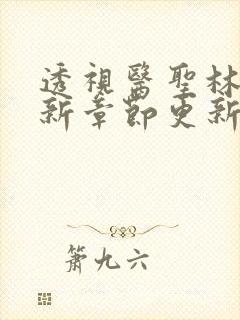 透視醫聖林
新章節更新
簫九六